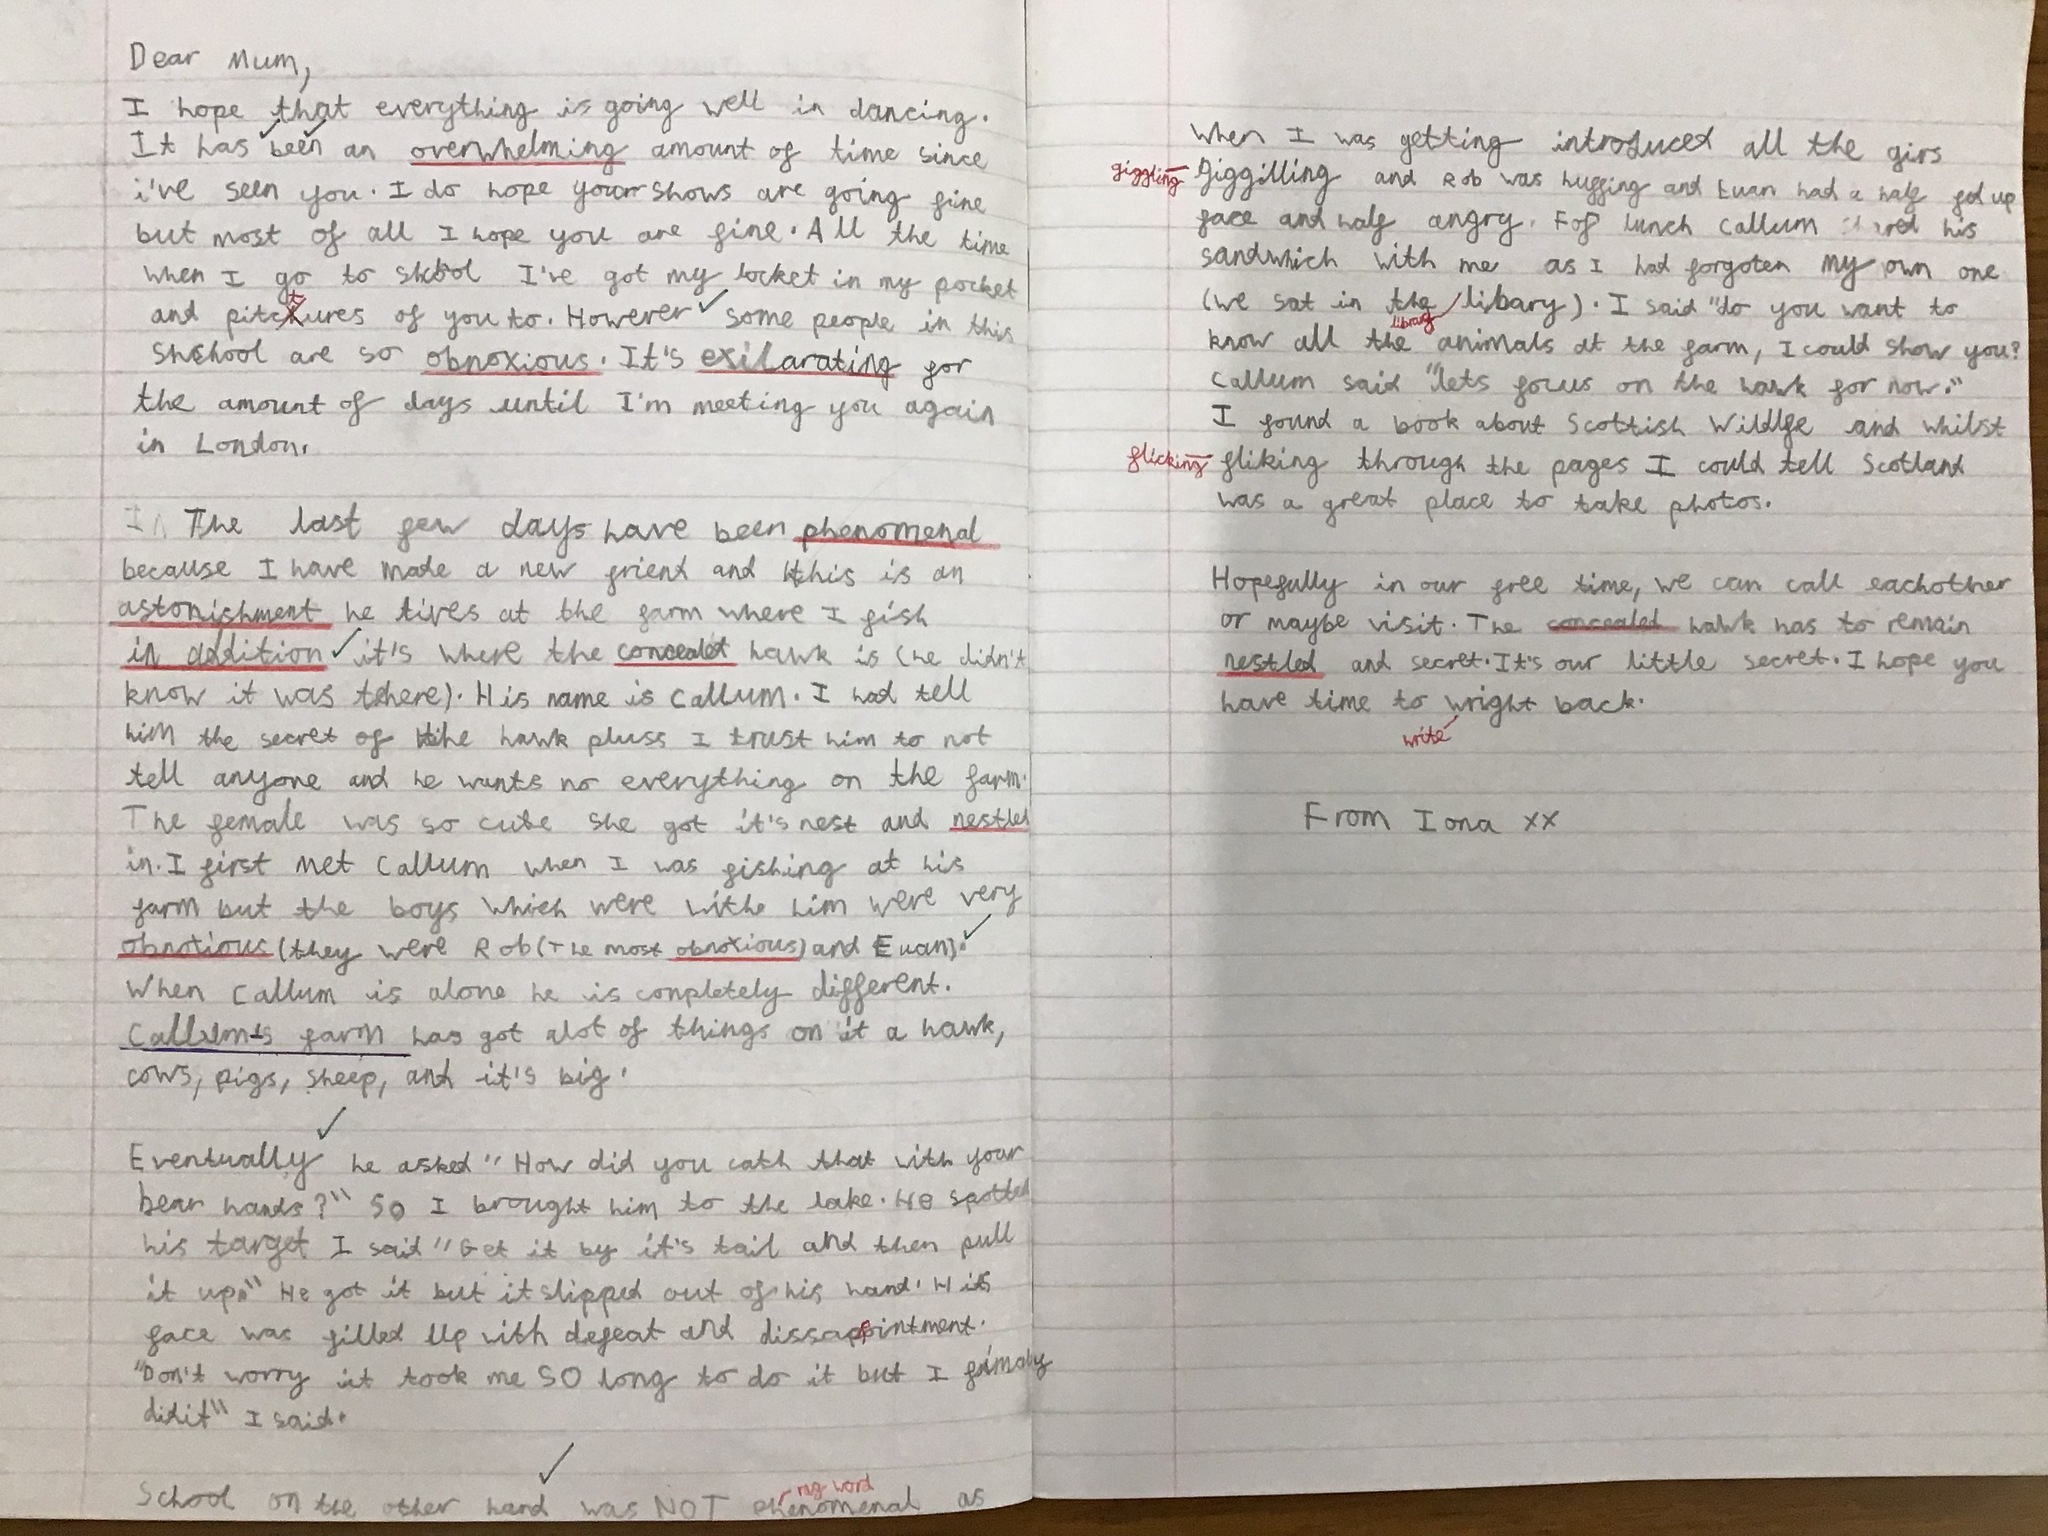 Dear Mum,
I hope that everything is going well in dancing.
It has been an overwhelming amount of time since
i've seen you. I do hope your shows are going fine
but most of all I hope you are fine. All the time
when I go to I've got my locket in my pocket
and of you to. However some people in this
are so obnoxious. It's exilarating for
the amount of days until I'm meeting you again
in London.
In The last few days have been phenomenal
because I have made a new friend and this is an
astonishment he lives at the farm where I fish
in addition it's where the concealed hawk is (he didn't
know it was there). His name is Callum. I had tell
him the secret of the hawk pluss I trust him to not
tell anyone and he wants no everything on the farm.
The female was so cute she got it's nest and nestled
in. I first met Callum when I was fishing at his
farm but the boys which were withe him were very
obnotious (they were Rob (The most obnoxious) and Euan).
When Callum is alone he is conpletely different.
Callum's farm has got alot of things on it a hawk,
cows, pigs, sheep, and it's big.
Eventually he asked "How did you cath that with your
bear hands?" So I brought him to the lake. He spotted
his target I said "Get it by it's tail and then pull
it up." He got it but it slipped out of his hand. His
face was filled up with defeat and
"Don't worry it took me SO long to do it but I
didit" I said.
rag word
School on the other hand was NOT phenomenal as
when I was getting introduced all the girs
giggling Giggilling and Rob was hugging and Euan had a half fed up
face and half angry. For lunch Callum his
sandwhich with me as I had forgoten my own one
(we sat in the libary). I said "do you want to
library
know all the animals at the farm, I could show you?
Callum said "lets focus on the hawk for now."
I found a book about Scottish Wildlfe and whilst
flicking fliking through the pages I could tell Scotland
was a great place to take photos.
Hopefully in our free time, we can call eachother
or maybe visit. The concealed hawk has to remain
nestled and secret. It's our little secret. I hope you
have time to wright back.
write
From Iona xx